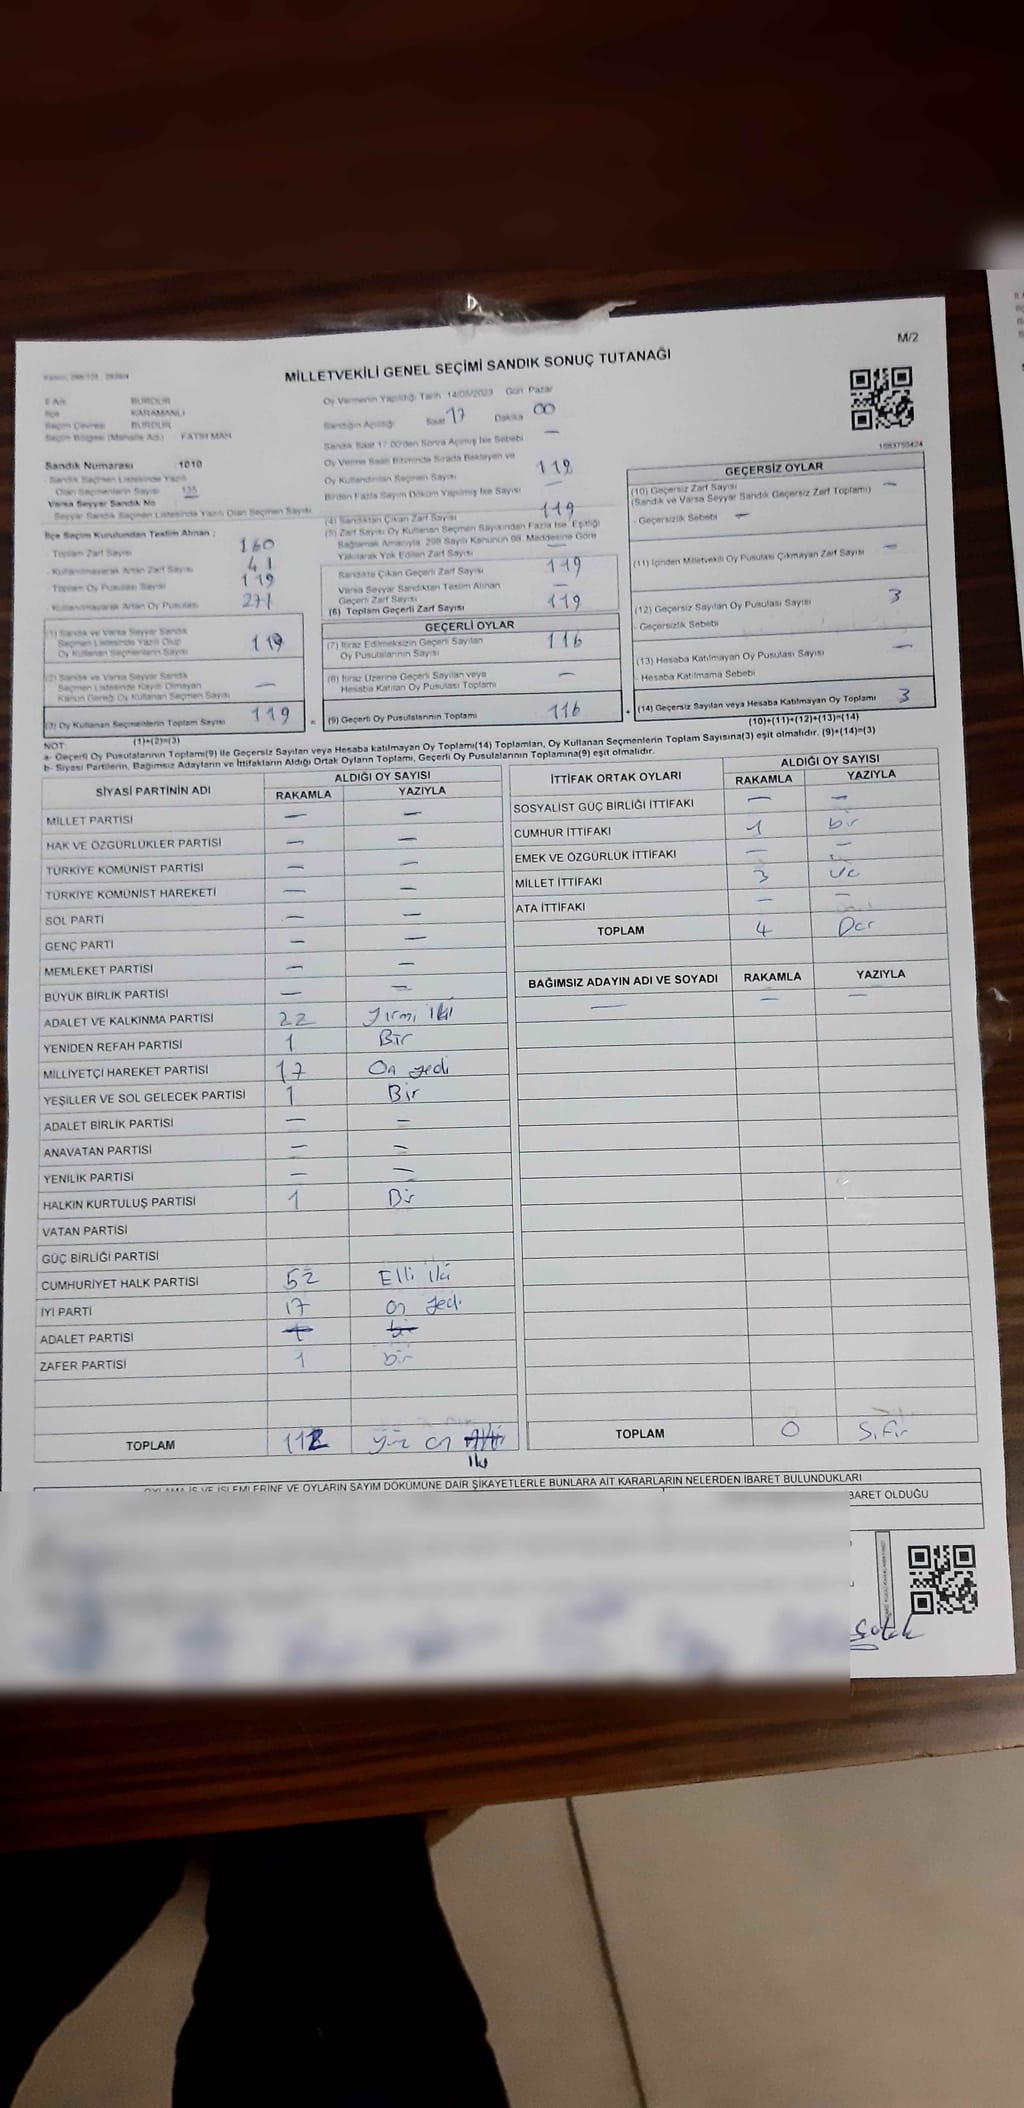 M/2
MİLLETVEKİLİ GENEL SEÇİMİ SANDIK SONUÇ TUTANAĞI
İl Adı BURDUR
İlçe KARAMANLI
Seçim Çevresi BURDUR
Seçim Bölgesi (Mahalle Ad.) FATİH MAH
Oy Vermenin Yapıldığı Tarih 14/05/2023 Gün Pazar
Sandığın Açıldığı Saat 17 Dakika 00
Sandık Saat 17:00'den Sonra Açılmış İse Sebebi —
Oy Verme Saati Bitiminde Sırada Bekleyen ve
Oy Kullandırılan Seçmen Sayısı
Birden Fazla Sayım Döküm Yapılmış İse Sayısı —
Sandık Numarası :1010
- Sandık Seçmen Listesinde Yazılı
Olan Seçmenlerin Sayısı 135
Varsa Seyyar Sandık No
Seyyar Sandık Seçmen Listesinde Yazılı Olan Seçmen Sayısı
İlçe Seçim Kurulundan Teslim Alınan ;
- Toplam Zarf Sayısı 160
- Kullanılmayarak Artan Zarf Sayısı 41
- Toplam Oy Pusulası Sayısı
- Kullanılmayarak Artan Oy Pusulası 271
(1) Sandık ve Varsa Seyyar Sandık
Seçmen Listesinde Yazılı Olup
Oy Kullanan Seçmenlerin Sayısı 119
(2) Sandık ve Varsa Seyyar Sandık
Seçmen Listesinde Kayıtlı Olmayan
Kanun Gereği Oy Kullanan Seçmen Sayısı —
(3) Oy Kullanan Seçmenlerin Toplam Sayısı 119
(1)+(2)=(3)
(4) Sandıktan Çıkan Zarf Sayısı 119
(5) Zarf Sayısı Oy Kullanan Seçmen Sayısından Fazla İse, Eşitliği
Sağlamak Amacıyla, 298 Sayılı Kanunun 98. Maddesine Göre
Yakılarak Yok Edilen Zarf Sayısı —
Sandıkta Çıkan Geçerli Zarf Sayısı 119
Varsa Seyyar Sandıktan Teslim Alınan
Geçerli Zarf Sayısı —
(6) Toplam Geçerli Zarf Sayısı 119
GEÇERLİ OYLAR
(7) İtiraz Edilmeksizin Geçerli Sayılan
Oy Pusulalarının Sayısı 116
(8) İtiraz Üzerine Geçerli Sayılan veya
Hesaba Katılan Oy Pusulası Toplamı —
(9) Geçerli Oy Pusulalarının Toplamı 116
GEÇERSİZ OYLAR
(10) Geçersiz Zarf Sayısı
(Sandık ve Varsa Seyyar Sandık Geçersiz Zarf Toplamı) —
- Geçersizlik Sebebi —
(11) İçinden Milletvekili Oy Pusulası Çıkmayan Zarf Sayısı —
(12) Geçersiz Sayılan Oy Pusulası Sayısı 3
- Geçersizlik Sebebi
(13) Hesaba Katılmayan Oy Pusulası Sayısı —
- Hesaba Katılmama Sebebi
(14) Geçersiz Sayılan veya Hesaba Katılmayan Oy Toplamı 3
(10)+(11)+(12)+(13)=(14)
NOT:
a- Geçerli Oy Pusulalarının Toplamı(9) ile Geçersiz Sayılan veya Hesaba katılmayan Oy Toplamı(14) Toplamları, Oy Kullanan Seçmenlerin Toplam Sayısına(3) eşit olmalıdır. (9)+(14)=(3)
b- Siyasi Partilerin, Bağımsız Adayların ve İttifakların Aldığı Ortak Oyların Toplamı, Geçerli Oy Pusulalarının Toplamına(9) eşit olmalıdır.
SİYASİ PARTİNİN ADI ALDIĞI OY SAYISI
RAKAMLA YAZIYLA
MİLLET PARTİSİ — —
HAK VE ÖZGÜRLÜKLER PARTİSİ — —
TÜRKİYE KOMÜNİST PARTİSİ — —
TÜRKİYE KOMÜNİST HAREKETİ — —
SOL PARTİ — —
GENÇ PARTİ — —
MEMLEKET PARTİSİ — —
BÜYÜK BİRLİK PARTİSİ — —
ADALET VE KALKINMA PARTİSİ 22 Yirmi iki
YENİDEN REFAH PARTİSİ 1 Bir
MİLLİYETÇİ HAREKET PARTİSİ 17 On yedi
YEŞİLLER VE SOL GELECEK PARTİSİ 1 Bir
ADALET BİRLİK PARTİSİ — —
ANAVATAN PARTİSİ — —
YENİLİK PARTİSİ — —
HALKIN KURTULUŞ PARTİSİ 1 Bir
VATAN PARTİSİ
GÜÇ BİRLİĞİ PARTİSİ
CUMHURİYET HALK PARTİSİ 52 Elli iki
İYİ PARTİ 17 on yedi
ADALET PARTİSİ
ZAFER PARTİSİ 1 bir
TOPLAM 112 yüz on iki
İTTİFAK ORTAK OYLARI ALDIĞI OY SAYISI
RAKAMLA YAZIYLA
SOSYALİST GÜÇ BİRLİĞİ İTTİFAKI — —
CUMHUR İTTİFAKI 1 bir
EMEK VE ÖZGÜRLÜK İTTİFAKI — —
MİLLET İTTİFAKI 3 üç
ATA İTTİFAKI — —
TOPLAM 4
BAĞIMSIZ ADAYIN ADI VE SOYADI RAKAMLA YAZIYLA
— — —
TOPLAM 0 Sıfır
OYLAMA İŞ VE İŞLEMLERİNE VE OYLARIN SAYIM DÖKÜMÜNE DAİR ŞİKAYETLERLE BUNLARA AİT KARARLARIN NELERDEN İBARET BULUNDUKLARI
BARET OLDUĞU